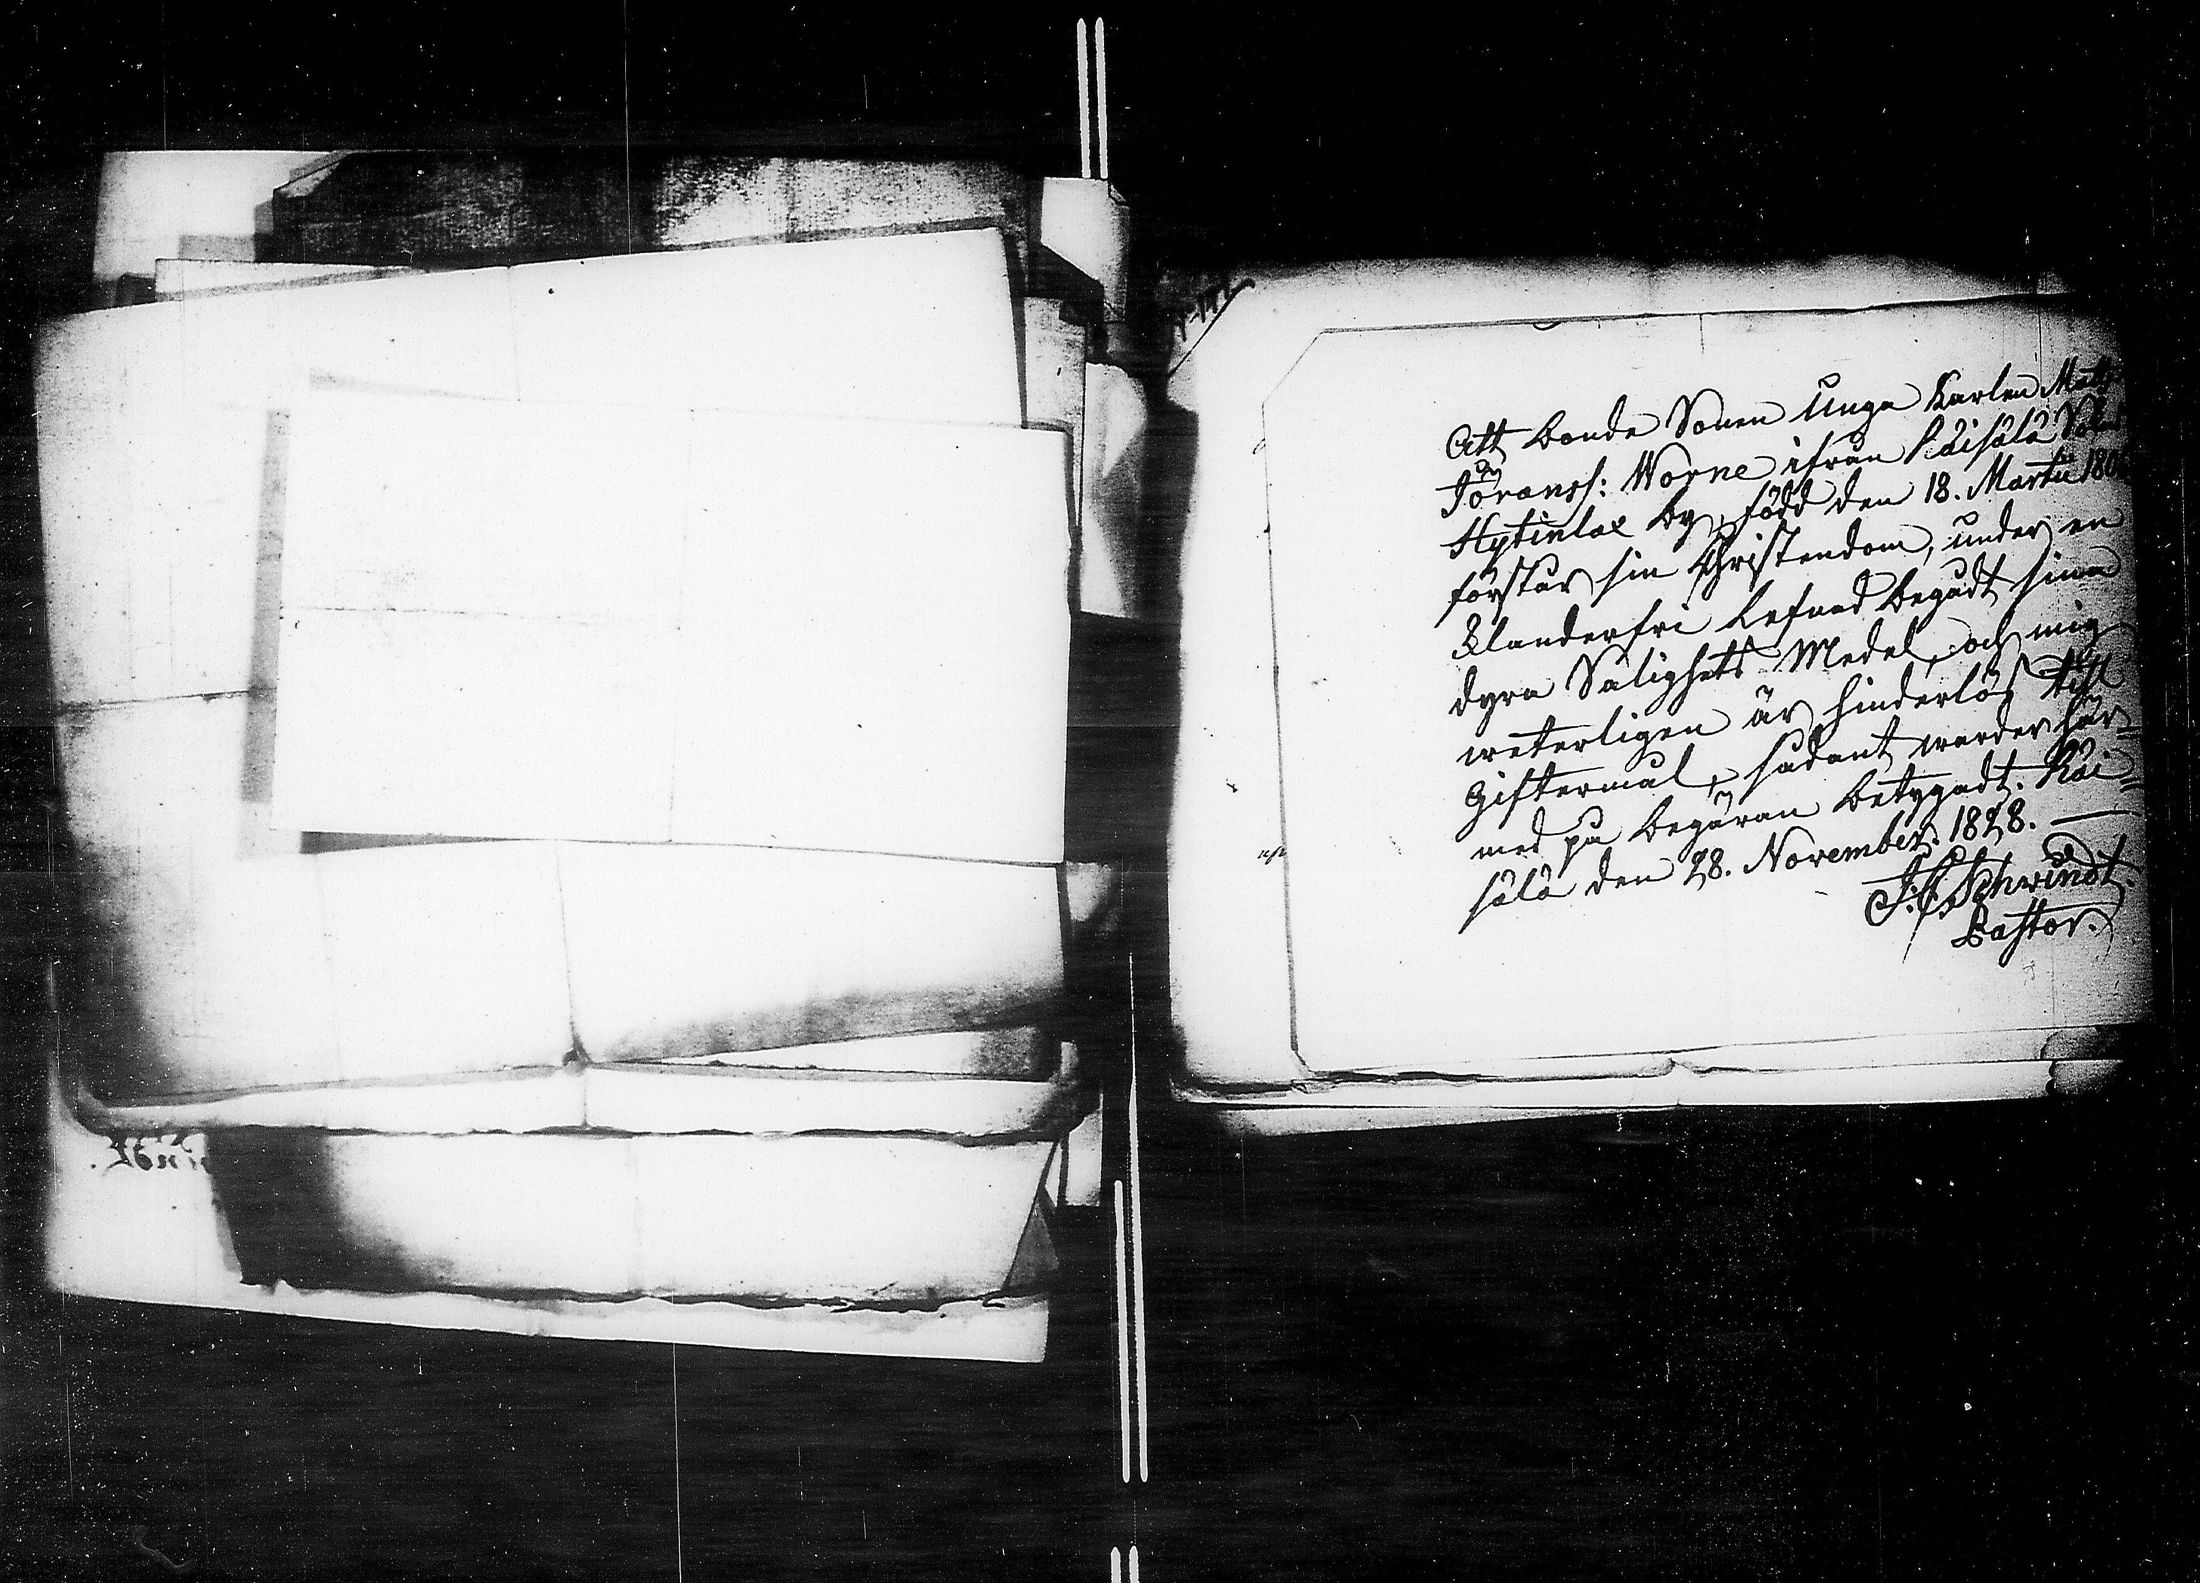 Att Bonde Sonen Unga Karlen Mats
Jöranss: Worne ifrån Räisälä Sokn
Hytinlax by, född den 18. Martii 180
förstår sin Christendom, under en
Klanderfri Lefnad begådt sina
dyra Salighets Medel, och mig
weterligen är hinderlös till
Giftermål, sådant warder här=
med på begäran betygadt. Räi=
sälä den 28. November. 1828.
J: C: Schwindt.
Pastor.